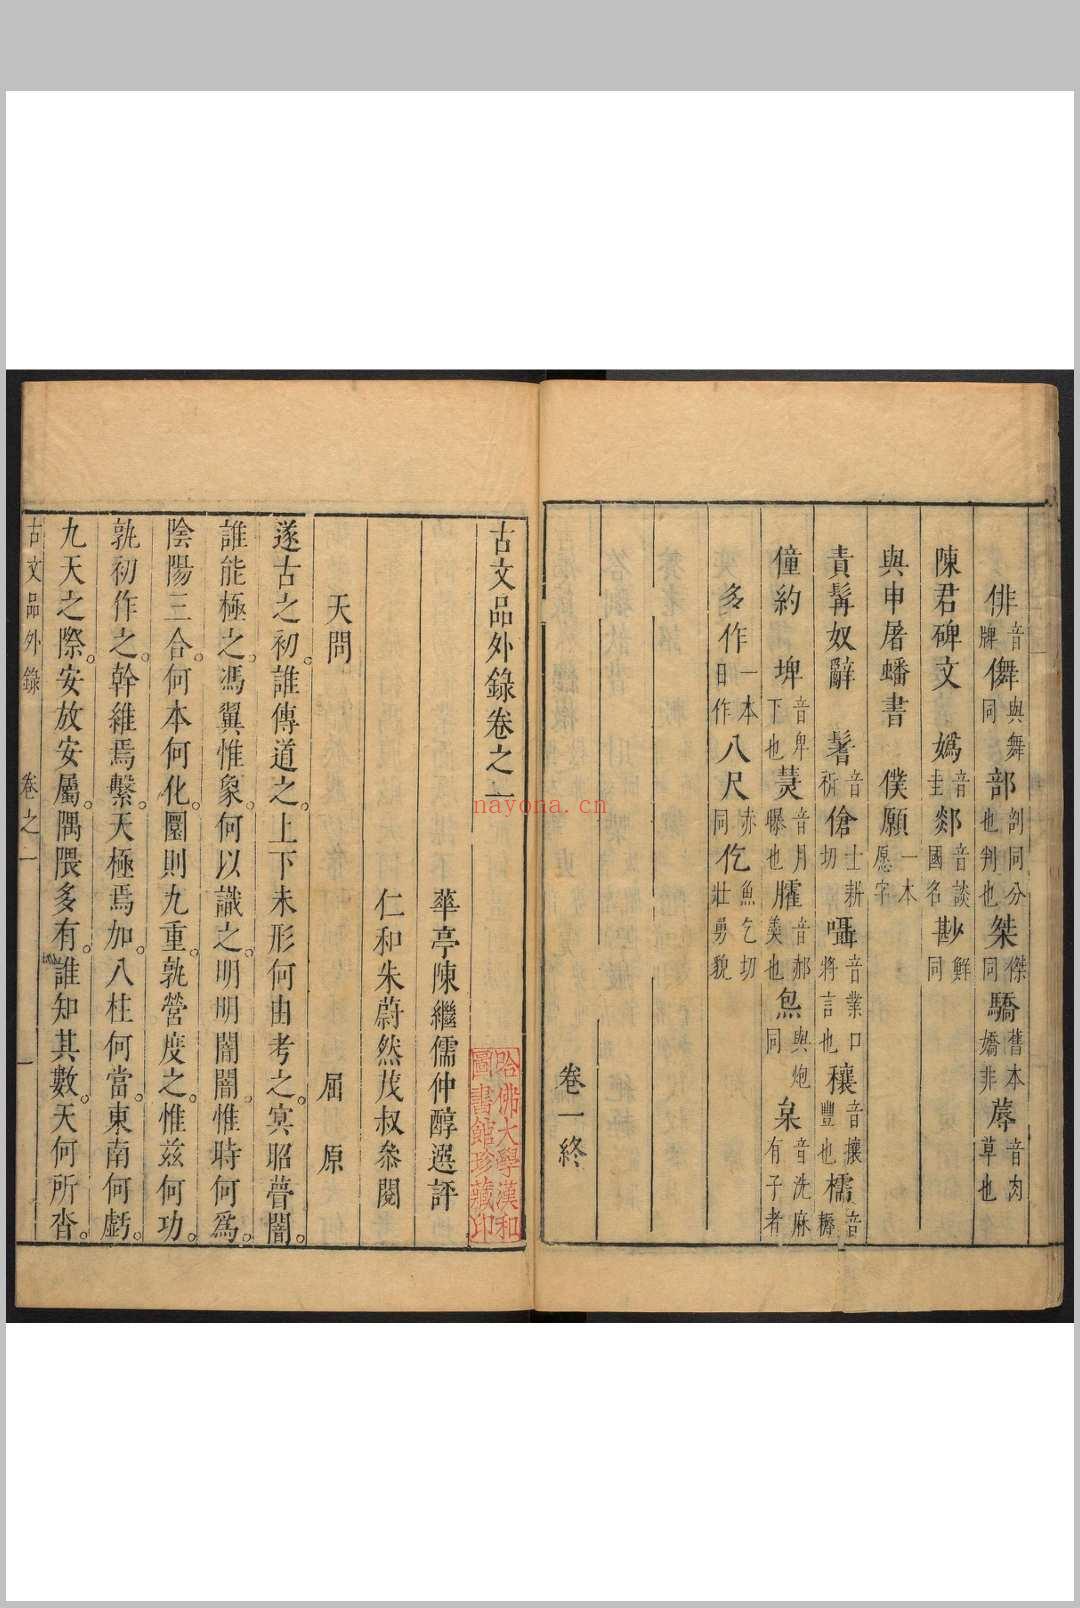 俳音牌儛與舞同部剖同分也判也桀傑同驕舊本嬌非蓐音肉草也
陳君碑文　媯音圭郯音談國名尠鮮同
與申屠蟠書　僕願一本愿字
責髯奴辭　鬐音祈傖士耕切囁音業口將言也穰音攘豐也檽音耨
僮約　埤音卑下也熭音月曝也臛音郝羹也炰與炮同枲音洗麻有子者
多作一本目作八尺赤同仡魚乞切壯勇貌
卷一終
古文品外錄卷之二
華亭陳繼儒仲醇選評
仁和朱蔚然茂叔叅閱
哈佛大學漢和
圖書館珍藏印
天問　屈原
遂古之初。誰傳道之。上下未形何由考之。冥昭瞢闇。
誰能極之。馮翼惟象。何以識之。明明闇闇。惟時何爲。
陰陽三合。何本何化。圜則九重。孰營度之。惟茲何功。
孰初作之。幹維焉繫。天極焉加。八柱何當。東南何虧。
九天之際。安放安屬。隅隈多有。誰知其數。天何所沓。
古文品外錄　卷之二　一
nayona.cn